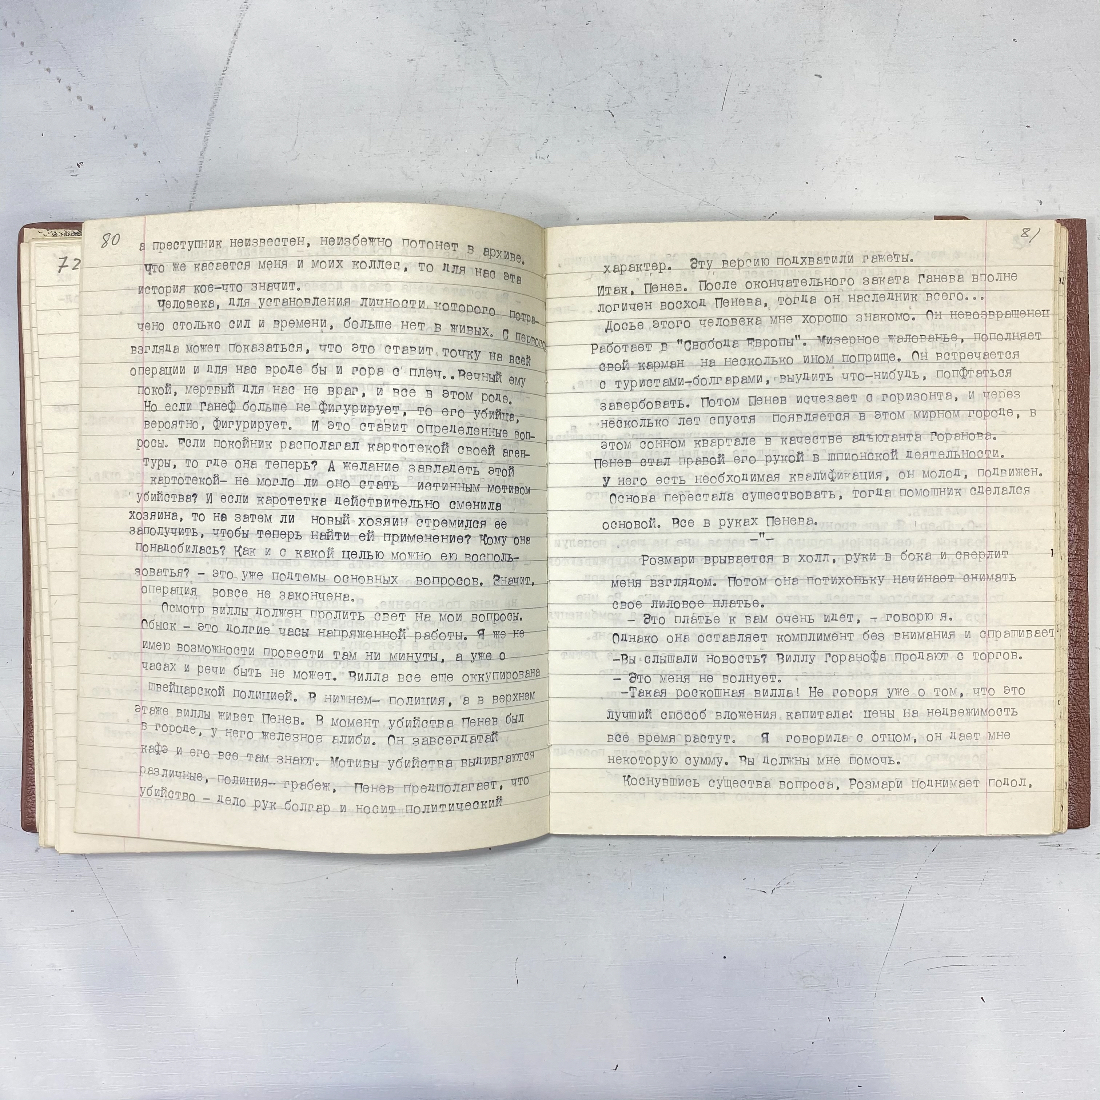 80
72
а преступник неизвестен, неизбежно потонет в архиве.
Что же касается меня и моих коллег, то для нас эта
история кое-что значит.
Человека, для установления личности которого потра-
чено столько сил и времени, больше нет в живых. С первого
взгляда может показаться, что это ставит точку на всей
операции и для нас вроде бы и гора с плеч..Вечный ему
покой, мертвый для нас не враг, и все в этом роде.
Но если Ганеф больше не фигурирует, то его убийца,
вероятно, фигурирует. И это ставит определенные воп-
росы. Если покойник располагал картотекой своей аген-
туры, то где она теперь? А желание завладеть этой
картотекой- не могло ли оно стать истинным мотивом
убийства? И если каротетка действительно сменила
хозяина, то на затем ли новый хозяин стремился ее
заполучить, чтобы теперь найти ей применение? Кому она
понадобилась? Как и с какой целью можно ею восполь-
зоваться? - это уже подтемы основных вопросов. Значит,
операция вовсе не закончена.
Осмотр виллы должен пролить свет на мои вопросы.
Обыск - это долгие часы напряженной работы. Я же не
имею возможности провести там ни минуты, а уже о
часах и речи быть не может. Вилла все еще оккупирована
швейцарской полицией. В нижнем- полиция, а в верхнем
этаже виллы живет Пенев. В момент убийства Пенев был
в городе, у него железное алиби. Он завсегдатай
кафэ и его все там знают. Мотивы убийства выдвигаются
различные, полиция- грабеж, Пенев предполагает, что
убийство - дело рук болгар и носит политический
81
характер. Эту версию подхватили газеты.
Итак, Пенев. После окончательного заката Ганева вполне
логичен восход Пенева, тогда он наследник всего...
Досье этого человека мне хорошо знакомо. Он невозвращенец
Работает в "Свобода Европы". Мизерное жалованье, пополняет
свой карман на несколько ином поприще. Он встречается
с туристами-болгарами, выудить что-нибудь, попфтаться
завербовать. Потом Пенев исчезает с горизонта, и через
несколько лет спустя появляется в этом мирном городе, в
этом сонном квартале в качестве адъютанта Горанова.
Пенев стал правой его рукой в шпионской деятельности.
У него есть необходимая квалификация, он молод, подвижен.
Основа перестала существовать, тогда помошник сделался
основой. Все в руках Пенева.
-"-
Розмари врывается в холл, руки в бока и сверлит
меня взглядом. Потом она потихоньку начинает снимать
свое лиловое платье.
- Это платье к вам очень идет, - говорю я.
Однако она оставляет комплимент без внимания и спрашивает
-Вы слышали новость? Виллу Горанофа продают с торгов.
- Это меня не волнует.
-Такая роскошная вилла! Не говоря уже о том, что это
лучший способ вложения капитала: цены на недвежимость
все время растут. Я говорила с отцом, он дает мне
некоторую сумму. Вы должны мне помочь.
Коснувшись существа вопроса, Розмари поднимает подол,